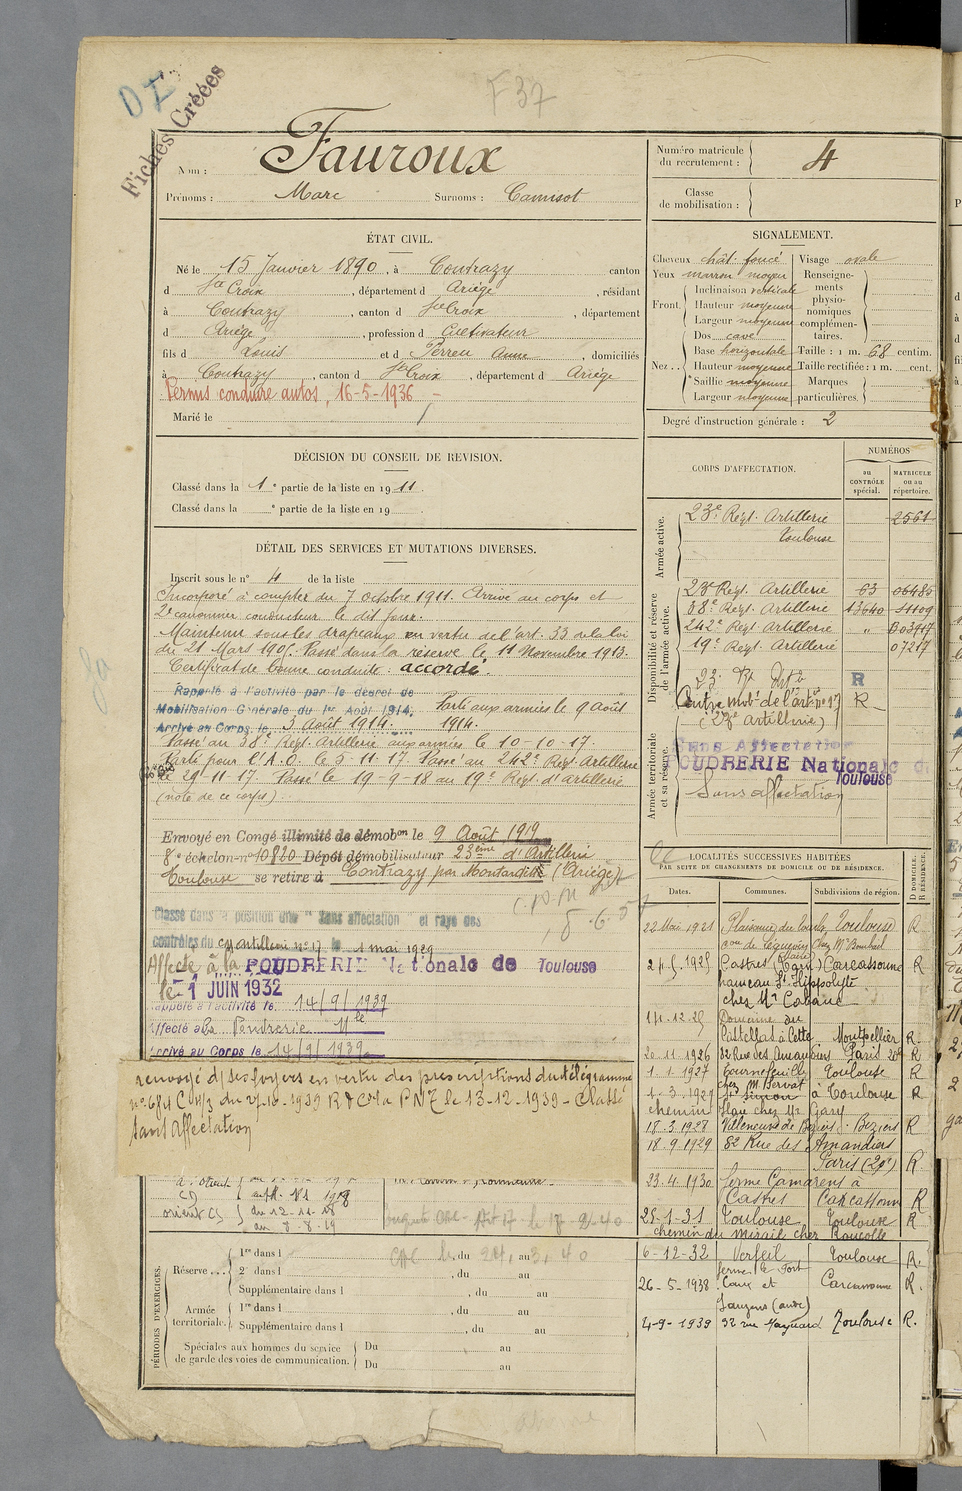 F 37
Fiches Créées
Nom : Fauroux
Prénoms : Marc Surnoms : Camisot
ÉTAT CIVIL.
Né le 15 Janvier 1890, à Contrazy canton
d Ste Croix, département d Ariège, résidant
à Contrazy, canton d Ste Croix, département
d Ariège, profession d Cultivateur
fils d Louis et d Perreu Anne, domiciliés
à Contrazy, canton d Ste Croix, département d Ariège
Permis conduire autos, 16-5-1936
Marié le
DÉCISION DU CONSEIL DE REVISION.
Classé dans la 1e partie de la liste en 1911.
Classé dans la e partie de la liste en 19
DÉTAIL DES SERVICES ET MUTATIONS DIVERSES.
Inscrit sous le n° 4 de la liste
Incorporé à compter du 7 octobre 1911. Arrivé au corps et
2e canonnier conducteur le dit jour.
Maintenu sous les drapeaux en vertu de l'art. 33 de la loi
du 21 Mars 1905. Passé dans la réserve le 11 Novembre 1913.
Certificat de bonne conduite : accordé.
Rappelé à l'activité par le décret de
Mobilisation Générale du 1er Août 1914. Parti aux armées le 9 Août
Arrivé au Corps le 3 Août 1914. 1914.
Passé au 38e Régt. Artillerie aux armées le 10-10-17.
Parti pour l'A.O. le 5-11-17. Passé au 242e Régt. Artillerie
le 29-11-17. Passé le 19-9-18 au 19e Régt. d'Artillerie
(note de ce corps)
Envoyé en Congé illimité de démobon le 9 Août 1919
8e échelon-n° 10820 Dépôt démobilisateur 23ème d'Artillerie
Toulouse se retire à Contrazy par Montardit (Ariège)
Classé dans la position dite "Sans affectation et rayé des
contrôles du C M artillerie n° 17 le 1 mai 1929
Affecté à la POUDRERIE Nationale de Toulouse
le 1 JUIN 1932
Rappelé à l'activité le 14/9/1939
Affecté à La Poudrerie Nle
Arrivé au Corps le 14/9/1939
renvoyé d/ses foyers en vertu des prescriptions du télégramme
n° 684 C 4/3 du 27-10-1939 R & C à P N T le 13-12-1939 - Classé
sans affectation
orient CS du 12-11-18
au 8-8-19
17-2-40
PÉRIODES D'EXERCICES.
Réserve... 1re dans l 24, au 3, 40
2e dans l , du au
Supplémentaire dans l , du au
Armée territoriale. 1re dans l , du au
Supplémentaire dans l , du au
Spéciales aux hommes du service Du au
de garde des voies de communication. Du au
Numéro matricule
du recrutement : 4
Classe
de mobilisation :
SIGNALEMENT.
Cheveux chât. foncé Visage ovale
Yeux marron moyen
Front. Inclinaison verticale
Hauteur moyenne
Largeur moyenne
Nez.. Dos cave
Base horizontale
Hauteur moyenne
Saillie moyenne
Largeur moyenne
Renseignements
physionomiques
complémentaires.
Taille : 1 m. 68 centim.
Taille rectifiée : 1 m. cent.
Marques
particulières.
Degré d'instruction générale : 2
CORPS D'AFFECTATION.
NUMÉROS
au CONTRÔLE spécial.
MATRICULE ou au répertoire.
Armée active.
23e Régt. Artillerie 2561
Toulouse
Disponibilité et réserve de l'armée active.
23e Régt. Artillerie 63 06485
38e Régt. Artillerie 13640 11109
242e Régt. Artillerie " B03917
19e Régt. Artillerie 07217
23e Rt Artie R
Centre mobr de l'artie n° 17 R
(23e Artillerie)
Armée territoriale et sa réserve.
Sans Affectation
POUDRERIE Nationale de
Toulouse
Sans affectation
LOCALITÉS SUCCESSIVES HABITÉES
PAR SUITE DE CHANGEMENTS DE DOMICILE OU DE RÉSIDENCE.
Dates. Communes. Subdivisions de région. D DOMICILE. R RÉSIDENCE.
22 Mai 1921 Plaisance du Touch, Toulouse R
1925 Castres (Tarn) Carcassonne R
hameau St Hippolyte
chez Mr Cabane
14.12.25 Domaine du
Castellas à Cette Montpellier R
20.11.1926 82 Rue des Amandiers Paris 20e R
1.1.1927 Tournefeuille Toulouse R
chez M. Bervat
1.3.1927 St Simon à Toulouse R
chemin chez Mr Gary
18.3.1928 Villeneuve de Béziers Béziers R
18.9.1929 82 Rue des Amandiers
Paris (20e) R
23.4.1930 ferme Gamarens à
Castres Carcassonne R
25-1-31 Toulouse Toulouse R
chemin du Mirail chez Roucolle
6-12-32 Verfeil Toulouse R.
ferme le Fort
26-5-1938 Caux et Carcassonne R.
Sauzens (aude)
4-9-1939 92 rue Maynard Toulouse R.